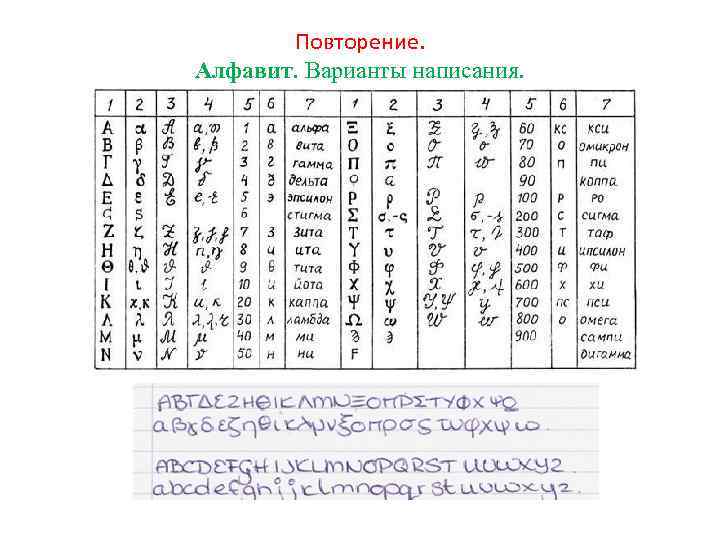 Повторение.
Алфавит. Варианты написания.
1 2 3 4 5 6 7 1 2 3 4 5 6 7
Α α 𝒜 α, 1 а альфа Ξ ξ Ξ ξ, ξ 60 кс кси
Β β ℬ β, β 2 в вита Ο ο О ο 70 о омикрон
Γ γ γ 3 г гамма Π π П ϖ 80 п пи
Δ δ D δ 4 д дельта Ϙ 90 коппа
Ε ε ℰ ε, ε 5 э эпсилон Ρ ρ Р ρ 100 р ро
Ϛ 6 стигма Σ σ,-ς Σ σ, -ς 200 с сигма
Ζ ζ ζ, ζ, ζ 7 з зита Τ τ 𝒯 τ, 300 т таф
Η η Н η 8 и ита Υ υ υ 400 и ипсилон
Θ θ, ϑ ϑ ϑ 9 ф тита Φ φ Ф φ, φ 500 ф фи
Ι ι Ι ι 10 и йота Χ χ Х χ 600 х хи
Κ χ, κ К κ 20 к каппа Ψ ψ Ψ 700 пс пси
Λ λ Λ λ, λ 30 л ламбда Ω ω W w 800 о омега
Μ μ М μ 40 м ми 900 сампи
Ν ν N ν 50 н ни F дигамма
ΑΒΓΔΕΖΗΘΙΚΛΜΝΞΟΠΡΣΤΥΦΧΨΩ
αβγδεζηθικλμνξοπρσς τυφχψιω.
ABCDEFGHIJKLMNOPQRSTUUVWXYZ
abcdefghijklmnopqrstuuvwxyz.